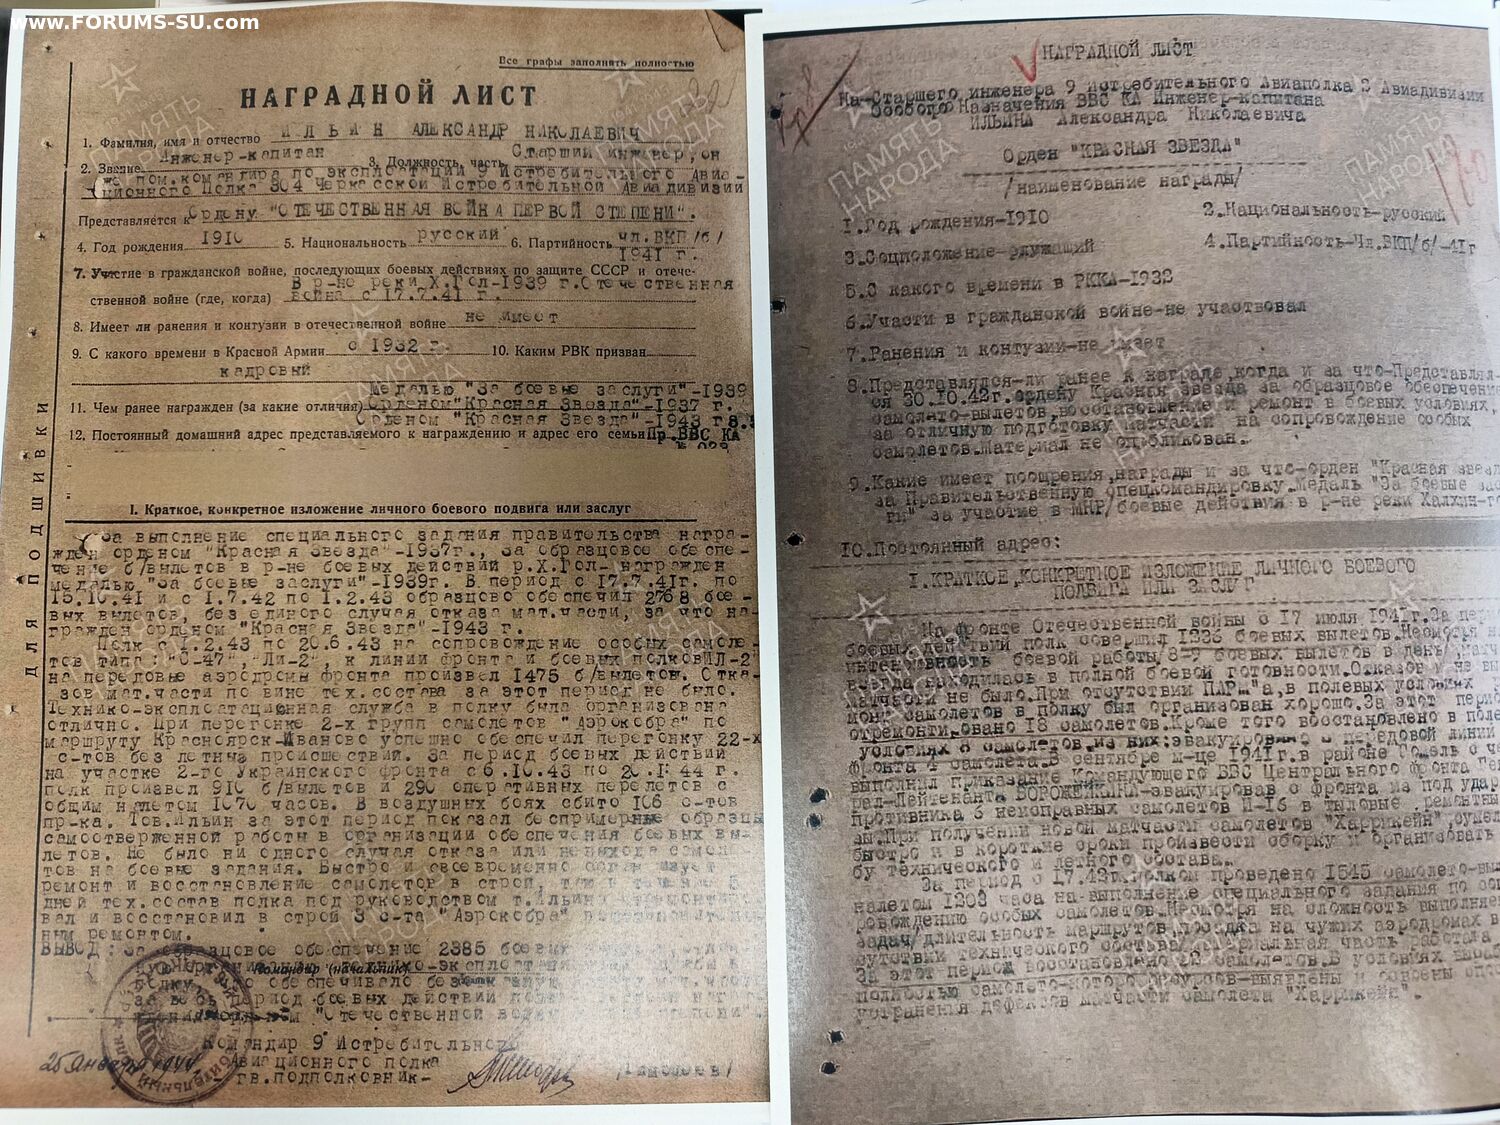 www.FORUMS-SU.com
Все графы заполнять полностью
НАГРАДНОЙ ЛИСТ
1. Фамилия, имя и отчество ИЛЬИН АЛЕКСАНДР НИКОЛАЕВИЧ
2. Звание Инженер-капитан 3. Должность, часть Старший инженер, он
же пом.командира по эксплоатации 9 Истребительного Авиа-
ционного Полка 304 Черкасской Истребительной Авиадивизии
Представляется к Ордену "ОТЕЧЕСТВЕННАЯ ВОЙНА ПЕРВОЙ СТЕПЕНИ".
4. Год рождения 1910 5. Национальность русский 6. Партийность чл.ВКП/б/
1941 г.
7. Участие в гражданской войне, последующих боевых действиях по защите СССР и отече-
В р-не реки Х.Гол-1939 г.Отечественная
ственной войне (где, когда) война с 17.7.41 г.
8. Имеет ли ранения и контузии в отечественной войне не имеет
9. С какого времени в Красной Армии с 1932 г. 10. Каким РВК призван
кадровый
Медалью "За боевые заслуги"-1939
11. Чем ранее награжден (за какие отличия) Орденом "Красная Звезда"-1937 г.
Орденом "Красная Звезда"-1943 г
12. Постоянный домашний адрес представляемого к награждению и адрес его семьи Пр.ВВС КА
ДЛЯ ПОДШИВКИ
I. Краткое, конкретное изложение личного боевого подвига или заслуг
За выполнение специального задания правительства награ-
жден орденом "Красная Звезда"-1937г., за образцовое обеспе-
чение б/вылетов в р-не боевых действий р.Х.Гол- награжден
медалью "За боевые заслуги"-1939г. В период с 17.7.41г. по
15.10.41 и с 1.7.42 по 1.2.43 образцово обеспечил 2768 бое-
вых вылетов, без единого случая отказа мат.части, за что на-
гражден орденом "Красная Звезда"-1943 г.
Полк с 1.2.43 по 20.6.43 на сопровождение особых самоле-
тов типа: "С-47", "Ли-2", к линии фронта и боевых полков ИЛ-2
на передовые аэродромы фронта произвел 1475 б/вылетов. Отка-
зов мат.части по вине тех.состава за этот период не было.
Технико-эксплоатационная служба в полку была организована
отлично. При перегонке 2-х групп самолетов "Аэрокобра" по
маршруту Красноярск-Иваново успешно обеспечил перегонку 22-х
с-тов без летных происшествий. За период боевых действий
на участке 2-го Украинского фронта с 6.10.43 по 44 г.
полк произвел 910 б/вылетов и 290 оперативных перелетов с
общим налетом 1070 часов. В воздушных боях сбито 106 с-тов
пр-ка. Тов.Ильин за этот период показал беспримерные образцы
самоотверженной работы в организации обеспечения боевых вы-
летов. Не было ни одного случая отказа или невыхода самоле-
тов на боевые задания. Быстро и своевременно организует
ремонт и восстановление самолетов в строй, так в течение 5
дней тех.состав полка под руководством т.Ильина отремонтиро-
вал и восстановил в строй 3 с-та "Аэрокобра"
ным ремонтом.
ВЫВОД: За образцовое обеспечение 2385 боевых
Командир (начальник)
за весь период боевых действий
"Отечественной войны
Командир 9 Истребительного
Авиационного полка
гв.подполковник-
25 января 1944
НАГРАДНОЙ ЛИСТ
На Старшего инженера 9 истребительного Авиаполка 2 Авиадивизии
Особого Назначения ВВС КА Инженер-капитана
ИЛЬИНА Александра Николаевича
Орден "КРАСНАЯ ЗВЕЗДА"
/наименование награды/
1.Год рождения-1910 2.Национальность-русский
3.Соцположение-служащий 4.Партийность-Чл.ВКП/б/-41г
5.С какого времени в РККА-1932
6.Участи в гражданской войне-не участвовал
7.Ранения и контузии-не имеет
8.Представлялся-ли ранее к награде,когда и за что-Представлял-
ся 30.10.42г.ордену Красная звезда за образцовое обеспечение
самолето-вылетов,восстановление и ремонт в боевых условиях,
за отличную подготовку матчасти на сопровождение особых
самолетов.Материал не опубликован.
9.Какие имеет поощрения,награды и за что-орден "Красная звезда
за Правительственную спецкомандировку.Медаль "За боевые зас
ги" за участие в МНР/боевые действия в р-не реки Халхин-го
10.Постоянный адрес:
I.КРАТКОЕ,КОНКРЕТНОЕ ИЗЛОЖЕНИЕ ЛИЧНОГО БОЕВОГО
ПОДВИГА ИЛИ ЗАСЛУГ
На фронте Отечественной войны с 17 июля 1941г.За пери
боевых действий полк совершил 1336 боевых вылетов.Несмотря на
интенсивность боевой работы/8-9 боевых вылетов в день/,матч
всегда находилась в полной боевой готовности.Отказов и не вы
матчасти не было.При отсутствии ПАРМ"а,в полевых условиях
монт самолетов в полку был организован хорошо.За этот пери
отремонтировано 18 самолетов.Кроме того восстановлено в поле
условиях 8 самолетов,из них:эвакуировано с передовой линии
фронта 4 самолета.В сентябре м-це 1941г.в районе Гомель с че
выполнил приказание Командующего ВВС Центрального фронта Ген
рал-Лейтенанта ВОРОЖЕЙКИНА-эвакуировав с фронта из под удар
противника 3 неисправных самолетов И-16 в тыловые ремонтны
зы.При получении новой матчасти самолетов "Харрикейн",сумел
быстро и в короткие сроки произвести сборку и организовать
бу технического и летного состава.
За период с 1.7.42г.полком проведено 1545 самолето-выл
налетом 1203 часа на-выполнение специального задания по соп
ровождению особых самолетов.Несмотря на сложность выполняем
задач/длительность маршрутов,посадка на чужих аэродромах
сутствии технического состава/материальная часть работала
За этот период восстановлено 22 самолетов.В условиях
полностью самолето-моторо.ресурсов-выявлены и освоены спос
устранения дефектов матчасти самолета "Харрикейн".
ПАМЯТЬ НАРОДА